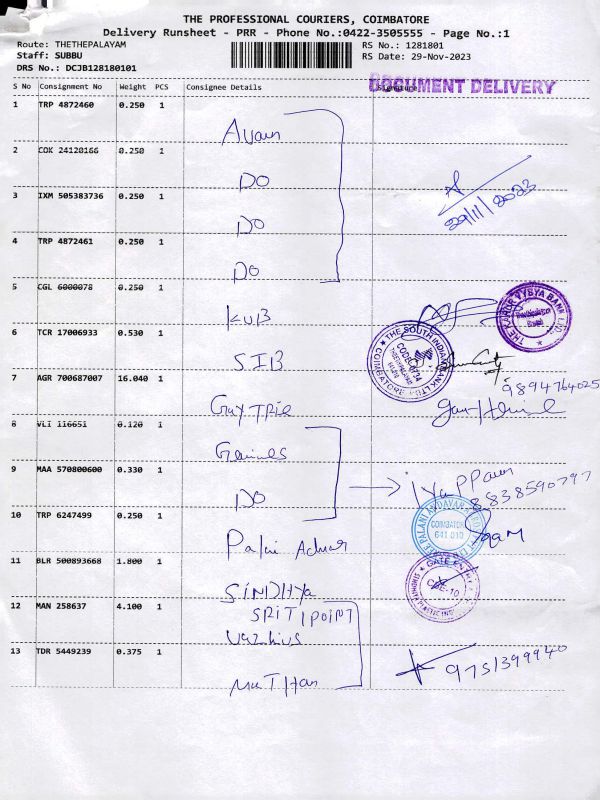 THE PROFESSIONAL COURIERS, COIMBATORE
Delivery Runsheet - PRR - Phone No.:0422-3505555 - Page No.:1
Route: THETHEPALAYAM
RS No.: 1281801
Staff: SUBBU
RS Date: 29-Nov-2023
DRS No.: DCJB128180101
DOCUMENT DELIVERY
S No Consignment No Weight PCS Consignee Details Signature
1 TRP 4872460 0.250 1
2 COK 24120166 0.250 1
DO
3 IXM 505383736 0.250 1
29/11/2023
DO
4 TRP 4872461 0.250 1
DO
5 CGL 6000078 0.250 1
KUB
THE KARUR VYSYA BANK LTD
6 TCR 17006933 0.530 1
SIB
THE SOUTH INDIAN BANK LTD
COIMBATORE
7 AGR 700687007 16.040 1
9894764025
8 VLI 116651 0.120 1
9 MAA 570800600 0.330 1
DO
8838590797
10 TRP 6247499 0.250 1
COIMBATORE
641 010
11 BLR 500893668 1.800 1
GATE ENTRY
CBE-10
SINDHYA
12 MAN 258637 4.100 1
SPIT POINT
13 TDR 5449239 0.375 1
9751399940